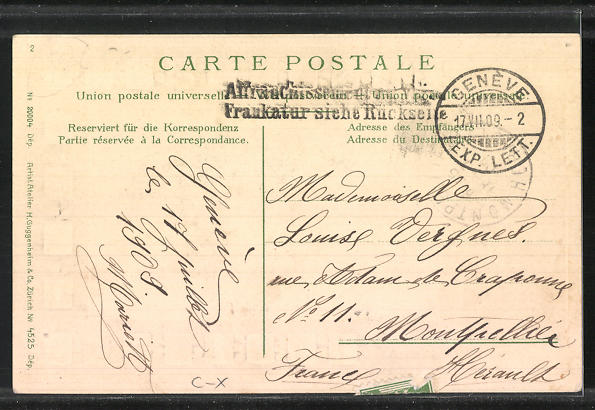 2
CARTE POSTALE
Union postale universelle
Union postale universelle
Affranchissement
Frankatur siehe Rückseite
GENÈVE
17.VII.09.-2
EXP. LETT.
Reserviert für die Korrespondenz
Partie réservée à la Correspondance.
Adresse des Empfängers
Adresse du Destinataire
Genève
le 17 Juillet
1909
Mademoiselle
Louise Vergnes.
rue Adam de Craponne
No 11.
Montpellier
France Hérault
C-X
No 20004 Dép. Artist. Atelier H. Guggenheim & Co. Zürich No 4525 Dép.